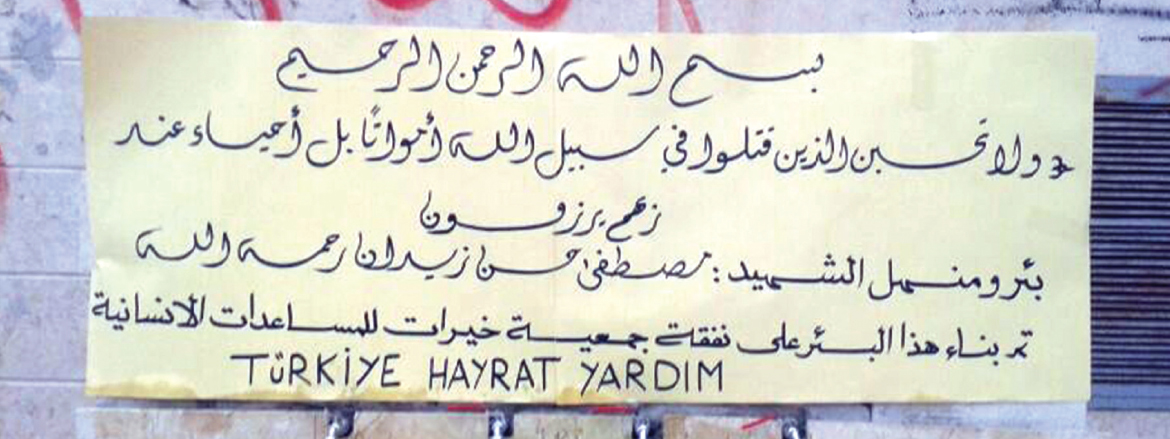 بسم الله الرحمن الرحيم
ولا تحسبن الذين قتلوا في سبيل الله أمواتًا بل أحياء عند
زهم يرزقون
بئر ومنهل الشهيد : مصطفى حسن زيدان رحمه الله
تم بناء هذا البئر على نفقة جمعية خيرات للمساعدات الانسانية
TÜRKİYE HAYRAT YARDIM